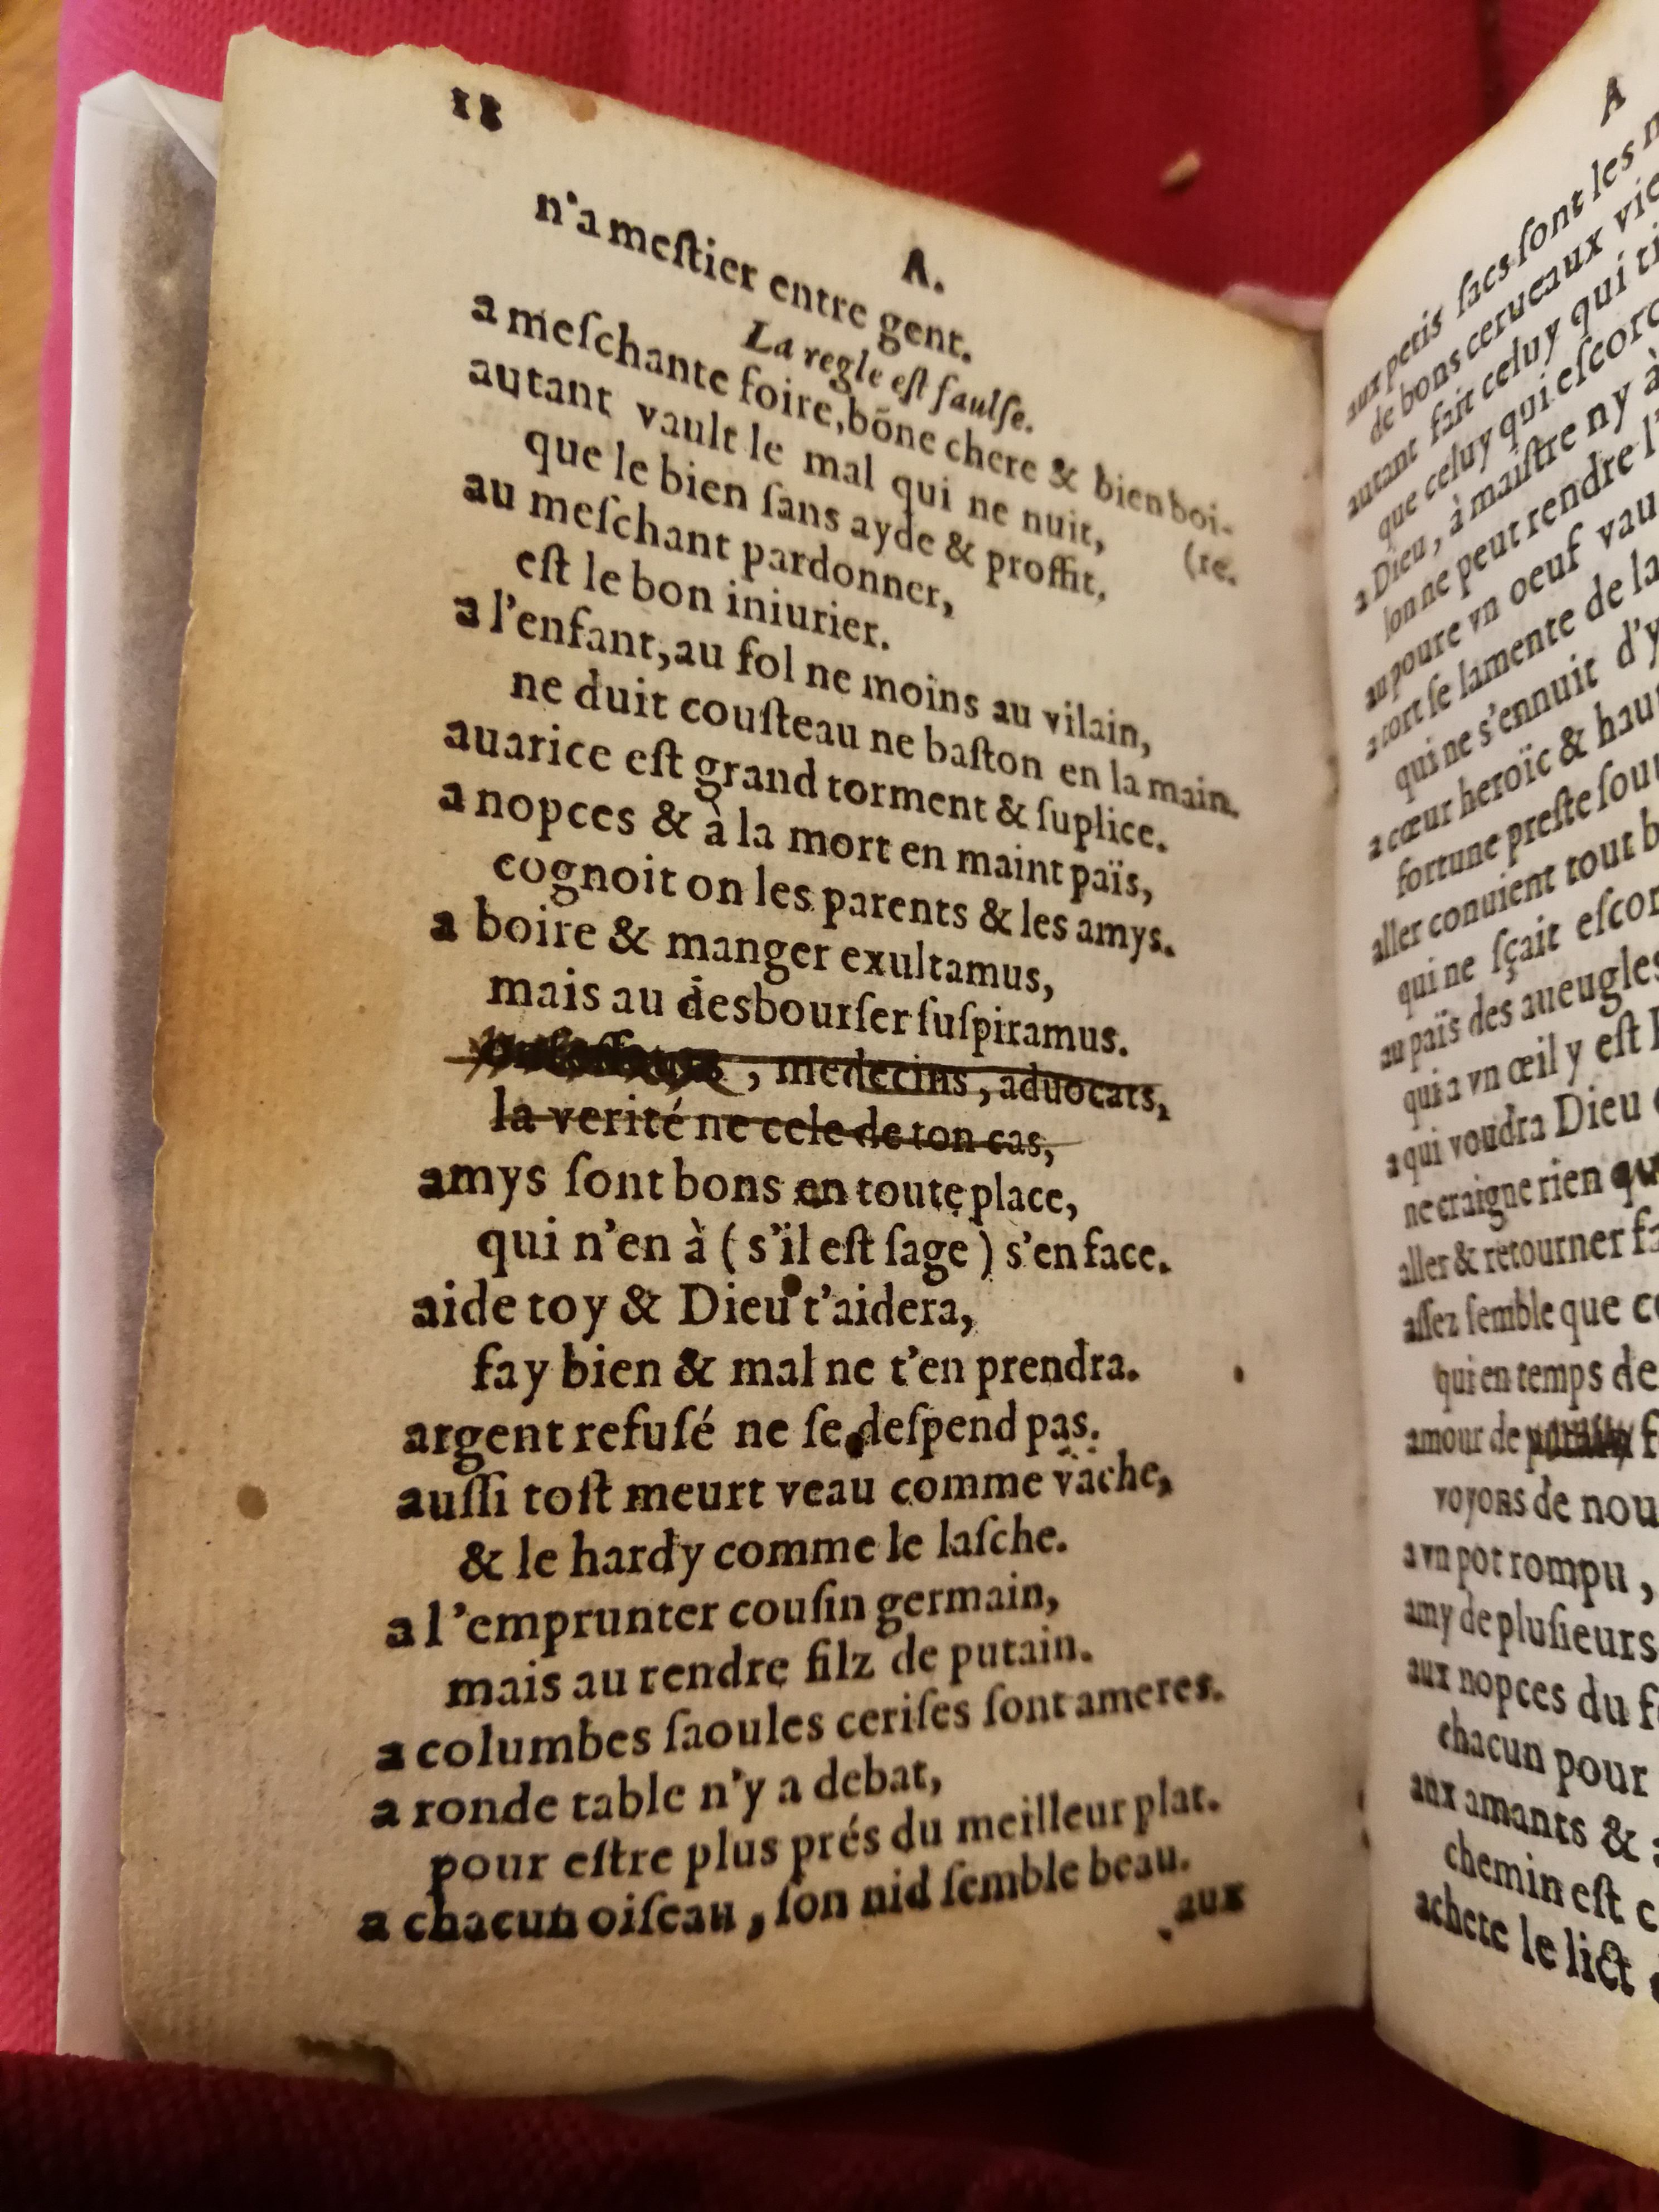 18
A.
n'a meſtier entre gent.
La regle eſt faulſe.
a meſchante foire, bōne chere & bien boi-
autant vault le mal qui ne nuit, (re.
que le bien ſans ayde & proffit.
au meſchant pardonner,
eſt le bon iniurier.
a l'enfant, au fol ne moins au vilain,
ne duit couſteau ne baſton en la main.
auarice eſt grand torment & ſuplice.
a nopces & à la mort en maint païs,
cognoit on les parents & les amys.
a boire & manger exultamus,
mais au desbourſer ſuſpiramus.
, medecins, aduocats,
la verité ne cele de ton cas,
amys ſont bons en toute place,
qui n'en à ( s'il eſt ſage ) s'en face.
aide toy & Dieu t'aidera,
fay bien & mal ne t'en prendra.
argent refuſé ne ſe deſpend pas.
auſſi toſt meurt veau comme vache,
& le hardy comme le laſche.
a l'emprunter couſin germain,
mais au rendre filz de putain.
a columbes ſaoules ceriſes ſont ameres.
a ronde table n'y a debat,
pour eſtre plus prés du meilleur plat.
a chacun oiſeau, ſon nid ſemble beau.
aux
A
aux petis ſacs ſont les
de bons cerueaux
autant fait celuy qui
que celuy qui
a Dieu, à maiſtre ny à
lon ne peut rendre
au poure vn oeuf
a tort ſe lamente de la
qui ne s'ennuit
a cœur heroïc &
fortune preſte
aller conuient tout
qui ne ſçait
au païs des aueugles
qui a vn œil y eſt
a qui voudra Dieu
ne craigne rien
aller & retourner
aſſez ſemble que
qui en temps de
amour de
voyons de
a vn pot rompu,
amy de pluſieurs
aux nopces du
chacun pour
aux amants &
chemin eſt
achete le lict